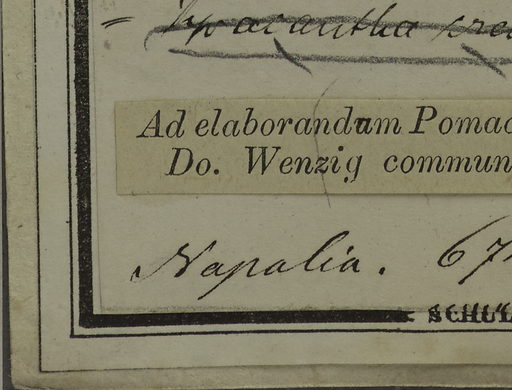 = Pyracantha cre
Ad elaborandum Pomac
Do. Wenzig commun
Napalia. 67
SCHUL